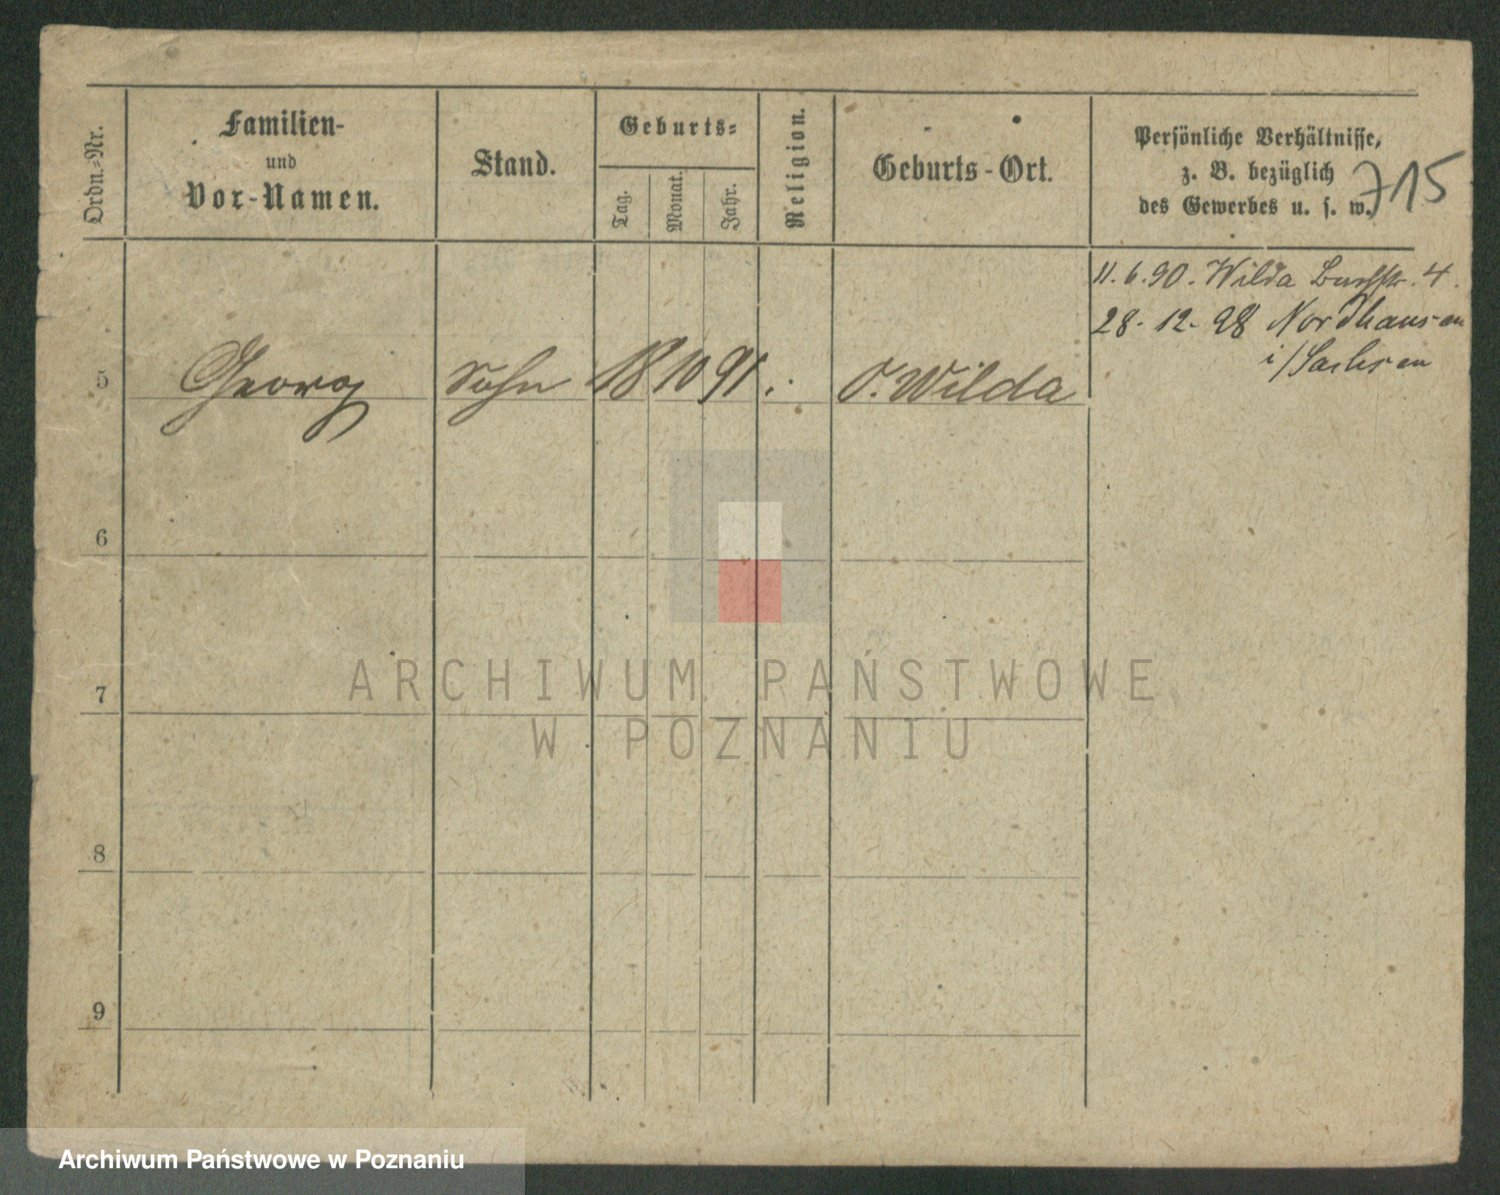 Ordn.-Nr.
Familien-
und
Vor-Namen.
Stand.
Geburts-
Tag.
Monat.
Jahr.
Religion.
Geburts-Ort.
Persönliche Verhältnisse,
z. B. bezüglich
des Gewerbes u. s. w.
715
11. 6. 90. Wilda 4.
28. 12. 98 Nordhausen
i/Sachsen
5 Georg Sohn 18 10 91. O. Wilda
6
7
8
9
ARCHIWUM PAŃSTWOWE
W POZNANIU
Archiwum Państwowe w Poznaniu